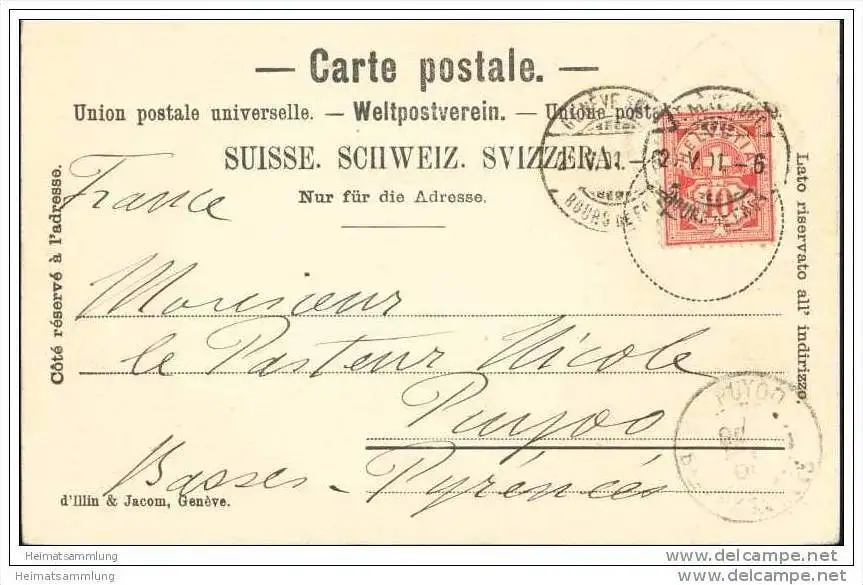 — Carte postale. —
Union postale universelle. — Weltpostverein. — Unione posta
SUISSE. SCHWEIZ. SVIZZERA.
Nur für die Adresse.
Côté réservé à l'adresse.
Lato riservato all' indirizzo.
GENÈVE
V. 01. – 6
BOURG DE
10
France
Monsieur
le Pasteur Nicole
Puyoo
Basses-Pyrénées
PUYOO
d'Illin & Jacom, Genève.
Heimatsammlung
Heimatsammlung
www.delcampe.net
www.delcampe.net